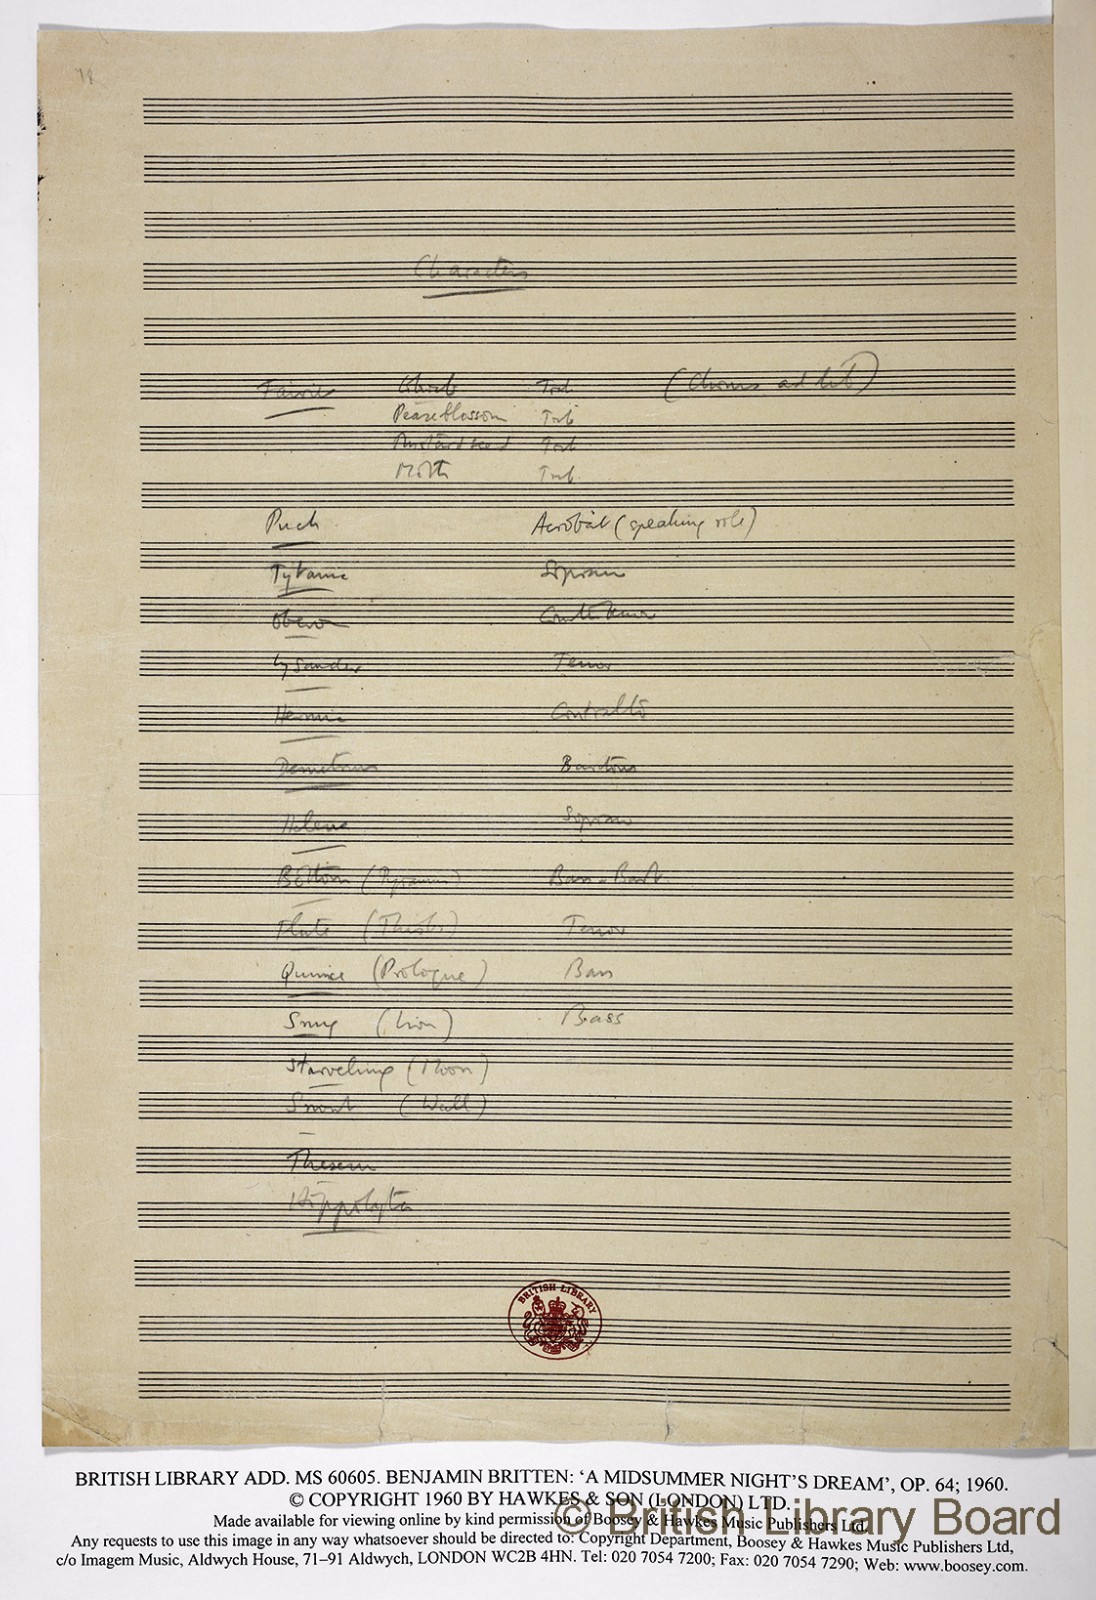 Characters
Fairies Cobweb Treb (Chorus ad lib)
Peaseblossom Treb
Mustardseed Treb
Moth Treb.
Puck Acrobat (speaking role)
Tytania Soprano
Oberon Counter tenor
Lysander Tenor
Hermia Contralto
Demetrius Baritone
Helena Soprano
Bottom (Pyramus) Bass-Barit.
Flute (Thisbe) Tenor
Quince (Prologue) Bass
Snug (Lion) Bass
Starveling (Moon)
Snout (Wall)
Theseus
Hippolyta
BRITISH LIBRARY
BRITISH LIBRARY ADD. MS 60605. BENJAMIN BRITTEN: ‘A MIDSUMMER NIGHT’S DREAM’, OP. 64; 1960.
© COPYRIGHT 1960 BY HAWKES & SON (LONDON) LTD.
Made available for viewing online by kind permission of Boosey & Hawkes Music Publishers Ltd.
© British Library Board
Any requests to use this image in any way whatsoever should be directed to: Copyright Department, Boosey & Hawkes Music Publishers Ltd,
c/o Imagem Music, Aldwych House, 71–91 Aldwych, LONDON WC2B 4HN. Tel: 020 7054 7200; Fax: 020 7054 7290; Web: www.boosey.com.